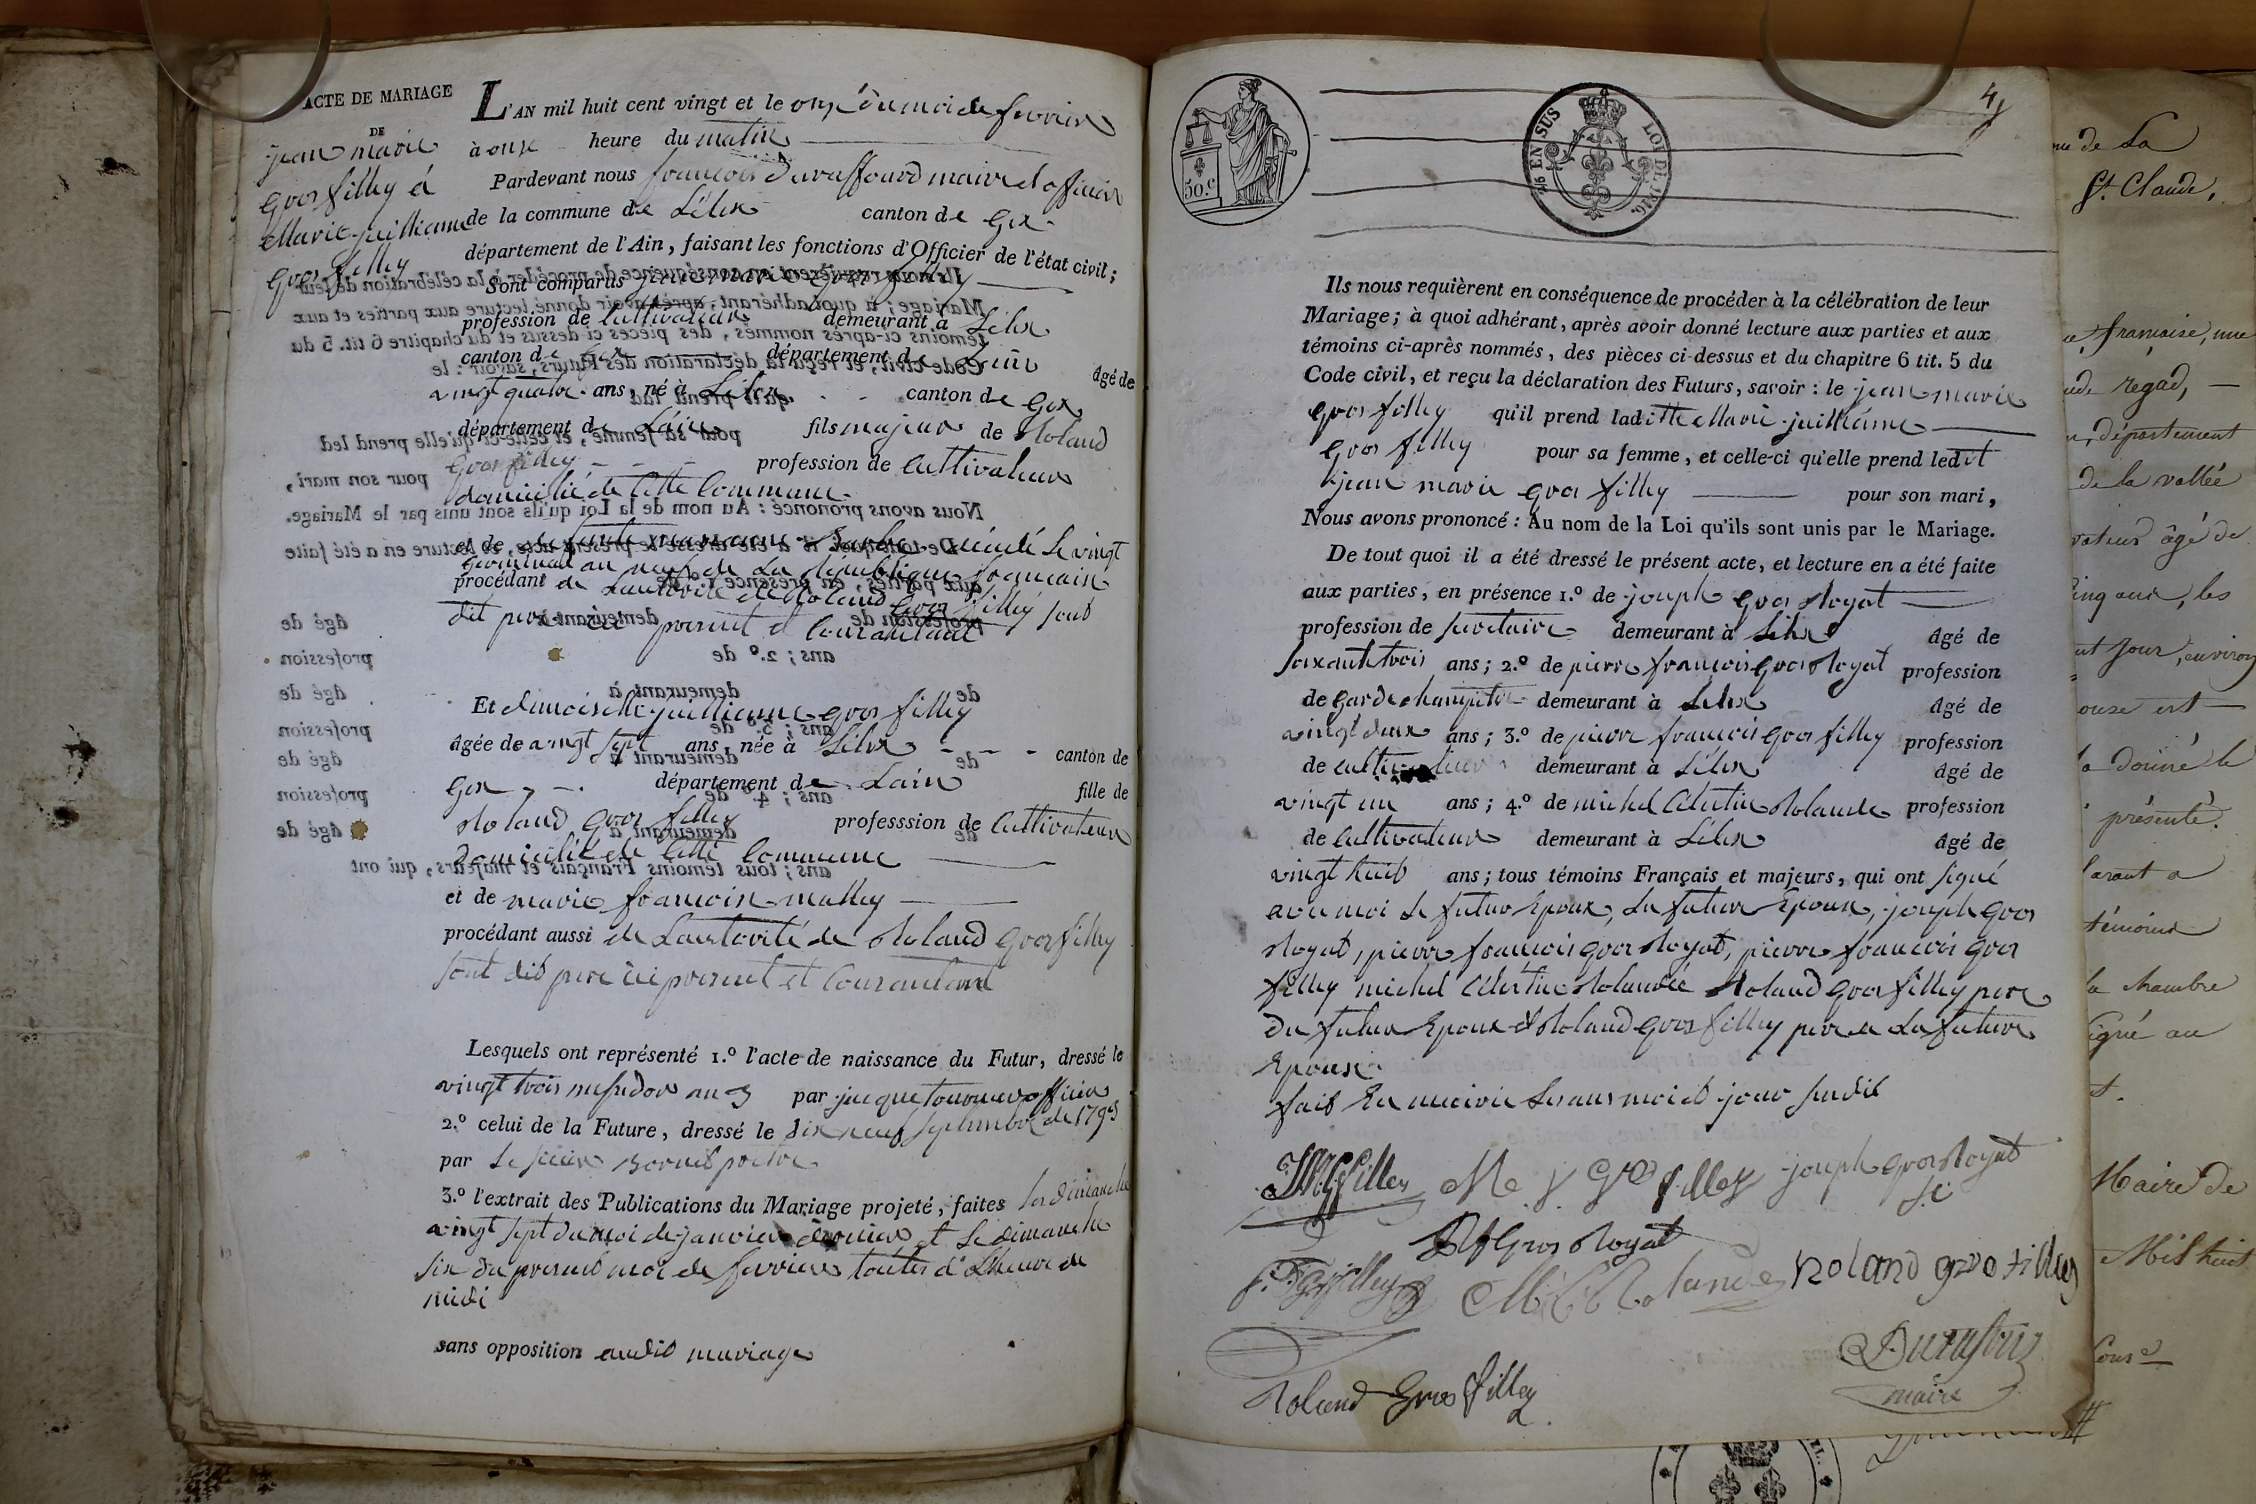 ACTE DE MARIAGE
DE
jean marie
gros filley &
Marie juillienne
gros filley
L'AN mil huit cent vingt et le onze du moi de fevrier
à onze heure du matin
Pardevant nous françois Duraffourd maire et officier
de la commune de Lélex canton de Gex
département de l'Ain, faisant les fonctions d'Officier de l'état civil;
Sont comparus jean marie gros filley
profession de Cultivateur demeurant à Lélex
canton de Gex département de Lain âgé de
vingt quatre ans, né à Lélex canton de Gex
département de Lain fils majeur de Roland
Gros filley profession de Cultivateur
domicilié de Cette Commune
et de défunte marianne décédé le vingt
germinal an neuf de La république françain
procédant de Lautorité de Roland Gros filley sout
dit pere ici present et Consentant
Et demoiselle juillienne gros filley
âgée de vingt sept ans, née à Lélex canton de
Gex département de Lain fille de
Roland Gros filley professsion de Cultivateur
domicilié de Cette Commune
et de marie françoise malley
procédant aussi de Lautorité de Roland Gros filley
sout dit pere ici present et Consentant
Lesquels ont représenté 1.º l'acte de naissance du Futur, dressé le
vingt trois messidor an 3 par jacque tournier officier
2.º celui de la Future, dressé le dix neuf septembre de 1792
par Le sieur pretre
3.º l'extrait des Publications du Mariage projeté, faites les dimanche
vingt sept du moi de janvier dernier et Le dimanche
six du present moi de fevrier toutes à Lheure de
midi
sans opposition audit mariage
4
50.c
EN SUS
LOI DE 1816.
Ils nous requièrent en conséquence de procéder à la célébration de leur
Mariage; à quoi adhérant, après avoir donné lecture aux parties et aux
témoins ci-après nommés, des pièces ci-dessus et du chapitre 6 tit. 5 du
Code civil, et reçu la déclaration des Futurs, savoir: le jean marie
gros filley qu'il prend laditte Marie juillienne
gros filley pour sa femme, et celle-ci qu'elle prend ledit
jean marie gros filley pour son mari,
Nous avons prononcé: Au nom de la Loi qu'ils sont unis par le Mariage.
De tout quoi il a été dressé le présent acte, et lecture en a été faite
aux parties, en présence 1.º de joseph gros Royat
profession de secretaire demeurant à Lélex âgé de
soixante trois ans; 2.º de pierre françois gros Royat profession
de garde champetre demeurant à Lélex âgé de
vingt deux ans; 3.º de pierre françois gros filley profession
de cultivateur demeurant à Lélex âgé de
vingt un ans; 4.º de michel Célestin Rolande profession
de Cultivateur demeurant à Lélex âgé de
vingt huit ans; tous témoins Français et majeurs, qui ont signé
avec moi Le futur Epoux, La future Epouse, joseph gros
Royat, pierre françois gros Royat, pierre françois gros
filley michel Célestin Rolande Roland gros filley pere
du futur Epoux et Roland gros filley pere de La future
Epouse
fait En mairie Les ans mois et jour susdit
JMGfilley M j Gros filley joseph gros Royat
P f Gros Royat
M C Rolande Roland gros filley
Duraffour
maire
Roland Gros filley
de La
St. Claude,
française, une
regad,
département
de la vallée
âgé de
ans, les
jour, environ
onze est
a donné le
présenté.
témoins
la chambre
signé au
Maire de
Mil huit